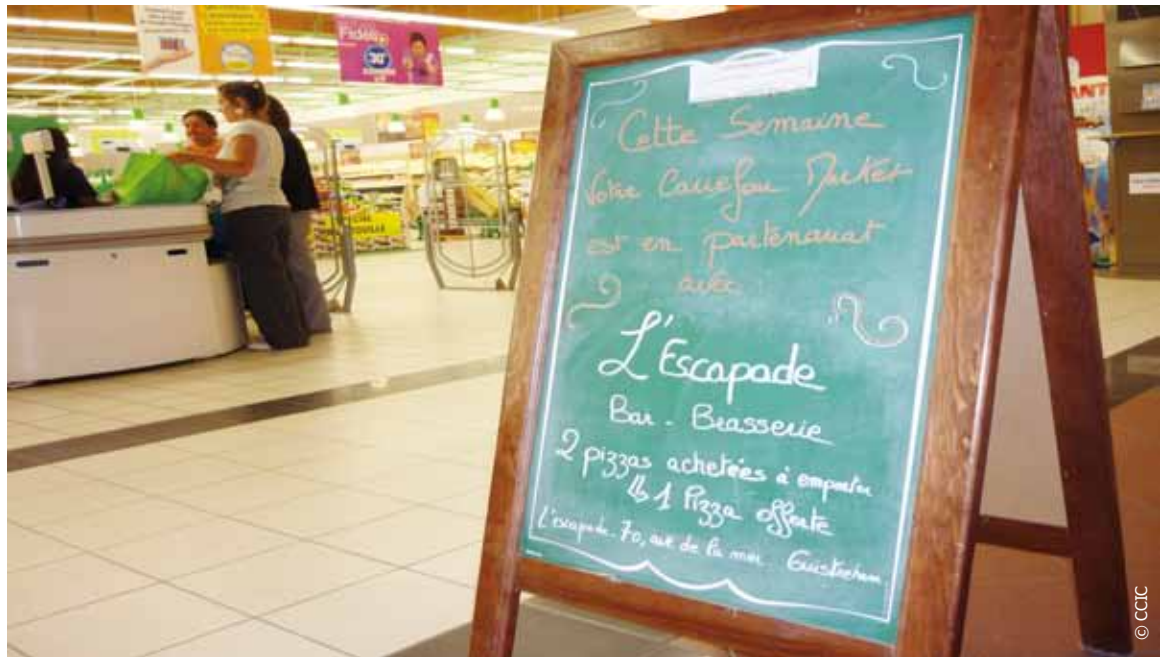 Fidélité
30
Cette Semaine
Votre Carrefour Market
est en partenariat
avec
L'Escapade
Bar - Brasserie
2 pizzas achetées à emporter
↳ 1 Pizza offerte
L'escapade. 70, ave de la mer Ouistreham
© CCIC